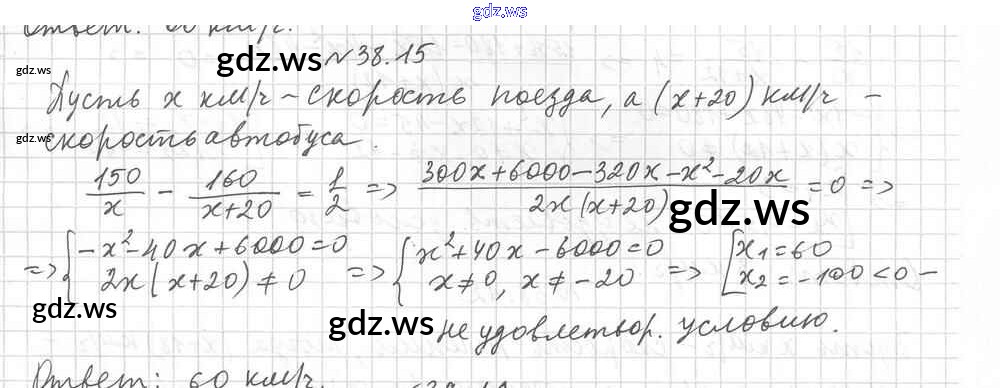 gdz.ws
Ответ: 60 км/ч.
gdz.ws
gdz.ws №38.15
Пусть x км/ч - скорость поезда, а (x+20) км/ч -
gdz.ws
скорость автобуса.
150/x - 160/(x+20) = 1/2 => (300x+6000-320x-x²-20x)/(2x(x+20)) = 0 =>
gdz.ws
=> { -x²-40x+6000=0 => { x²+40x-6000=0 => [ x₁=60
2x(x+20)≠0 x≠0, x≠-20 x₂=-100<0 -
gdz.ws
gdz.ws не удовлетвор. условию.
Ответ: 60 км/ч.